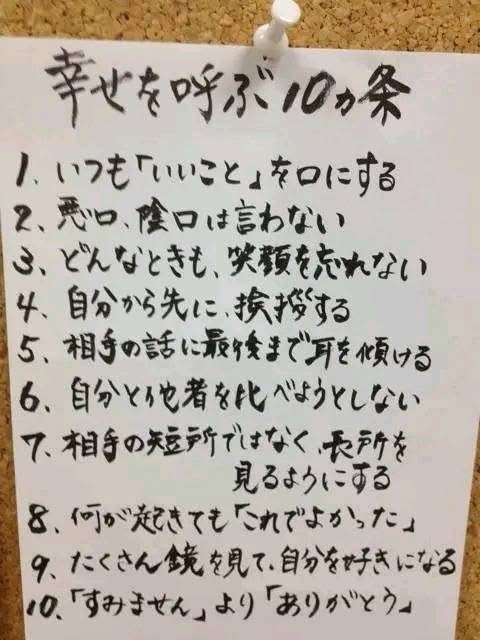 幸せを呼ぶ10ヵ条
1、いつも「いいこと」を口にする
2、悪口、陰口は言わない
3、どんなときも、笑顔を忘れない
4、自分から先に、挨拶する
5、相手の話に最後まで耳を傾ける
6、自分と他者を比べようとしない
7、相手の短所ではなく、長所を
見るようにする
8、何が起きても「これでよかった」
9、たくさん鏡を見て、自分を好きになる
10、「すみません」より「ありがとう」